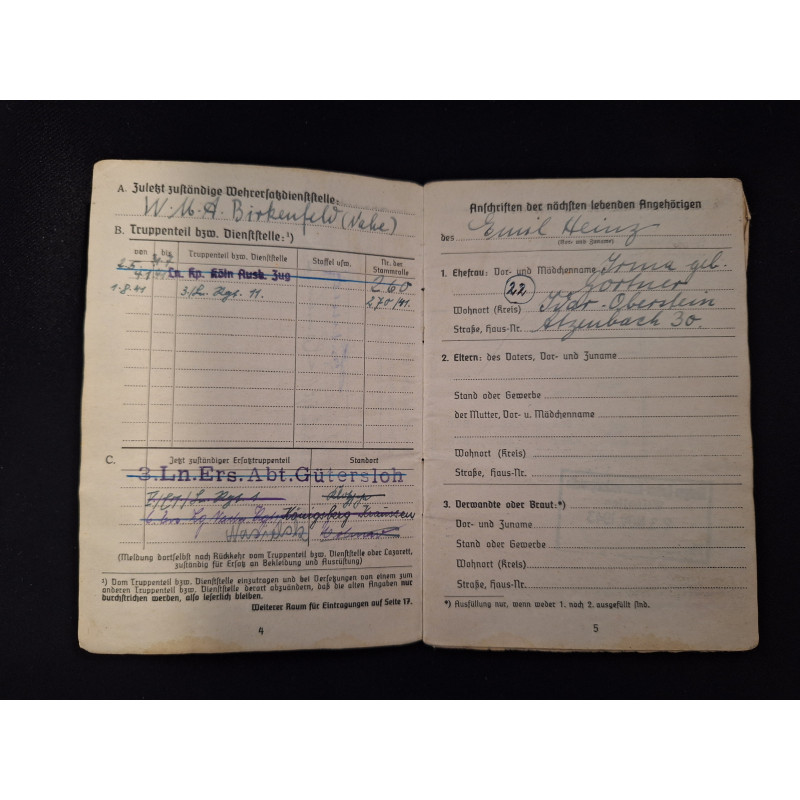 A. Zuletzt zuständige Wehrersatzdienststelle:
W.M.A. Birkenfeld (Nahe)
B. Truppenteil bzw. Dienststelle:¹)
von bis Truppenteil bzw. Dienststelle Staffel usw. Nr. der Stammrolle
Ln. Kp. Köln Ausb. Zug 260
1.8.41 3./Ln. Rgt. 11. 270/41.
C. Jetzt zuständiger Ersatztruppenteil Standort
3. Ln. Ers. Abt. Gütersloh
Ln. Rgt. 1
Königsberg
(Meldung dortselbst nach Rückkehr vom Truppenteil bzw. Dienststelle oder Lazarett,
zuständig für Ersatz an Bekleidung und Ausrüstung)
¹) Vom Truppenteil bzw. Dienststelle einzutragen und bei Versetzungen von einem zum
anderen Truppenteil bzw. Dienststelle derart abzuändern, daß die alten Angaben nur
durchstrichen werden, also leserlich bleiben.
Weiterer Raum für Eintragungen auf Seite 17.
4
Anschriften der nächsten lebenden Angehörigen
des Emil Heinz
(Vor- und Zuname)
1. Ehefrau: Vor- und Mädchenname Irma geb.
Gortner
22
Wohnort (Kreis) Idar-Oberstein
Straße, Haus-Nr. Atzenbach 30.
2. Eltern: des Vaters, Vor- und Zuname
Stand oder Gewerbe
der Mutter, Vor- u. Mädchenname
Wohnort (Kreis)
Straße, Haus-Nr.
3. Verwandte oder Braut:*)
Vor- und Zuname
Stand oder Gewerbe
Wohnort (Kreis)
Straße, Haus-Nr.
*) Ausfüllung nur, wenn weder 1. noch 2. ausgefüllt sind.
5